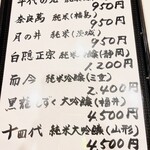 950円
奈良萬 純米(福島)
950円
月の井 純米(茨城)
950円
白隠正宗 純米(静岡)
1.200円
而今 純米吟醸(三重)
2.400円
黒龍しずく 大吟醸(福井)
4.500円
十四代 純米大吟醸(山形)
4.500円